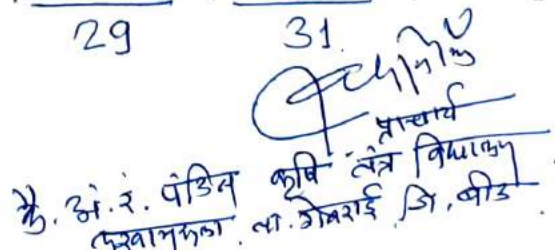 29 31.
प्राचार्य
कै. अं. रं. पंडित कृषि तंत्र विद्यालय
ता. गेवराई जि. बीड